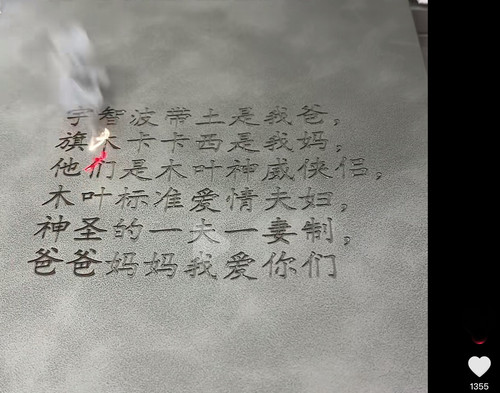 宇智波带土是我爸，
旗木卡卡西是我妈，
他们是木叶神威侠侣，
木叶标准爱情夫妇，
神圣的一夫一妻制，
爸爸妈妈我爱你们
1355